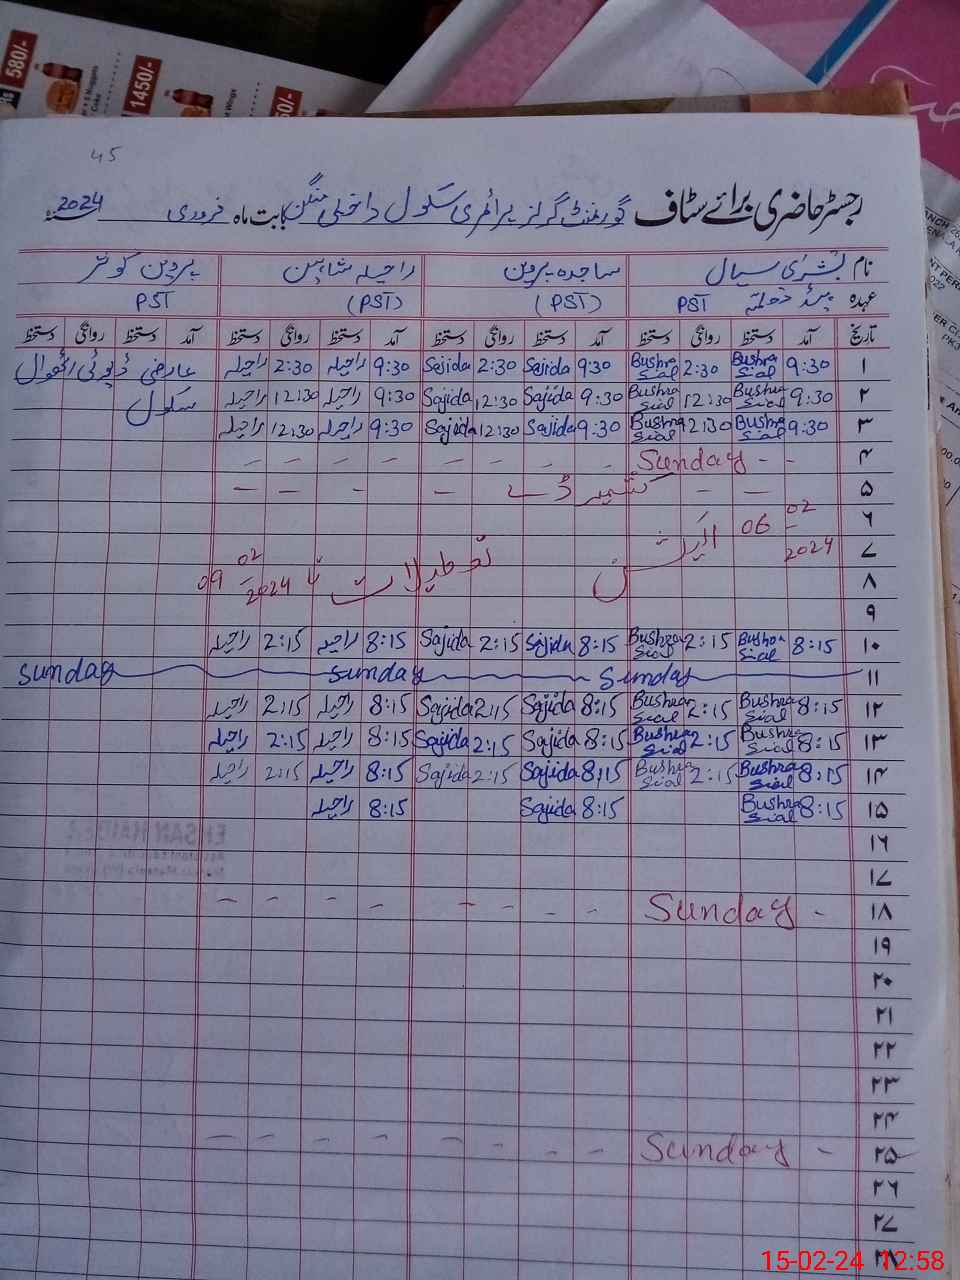 580/-
1450/-
Nuggets
Coke
Wings
45
رجسٹر حاضری برائے سٹاف گورنمنٹ گرلز پرائمری سکول داخلی منگن بابت ماہ فروری 2024
نام بشریٰ سیال ساجدہ پروین راحیلہ شاہین پروین کوثر
عہدہ PST (PST) (PST) PST
تاریخ آمد دستخط روانگی دستخط آمد دستخط روانگی دستخط آمد دستخط روانگی دستخط آمد دستخط روانگی دستخط
۱ 9:30 Bushra Sial 2:30 Bushra Sial 9:30 Sajida 2:30 Sajida 9:30 راحیلہ 2:30 راحیلہ عارضی ڈیوٹی
۲ 9:30 Bushra Sial 12:30 Bushra Sial 9:30 Sajida 12:30 Sajida 9:30 راحیلہ 12:30 راحیلہ سکول
۳ 9:30 Bushra Sial 12:30 Bushra Sial 9:30 Sajida 12:30 Sajida 9:30 راحیلہ 12:30 راحیلہ
۴ - - Sunday - - - - - - - -
۵ - - کشمیر ڈے - - - -
۶ 02
06
۷ 2024 الیکشن تعطیلات تا 02
۸ 09 2024
۹
۱۰ 8:15 Bushra Sial 2:15 Bushra Sial 8:15 Sajida 2:15 Sajida 8:15 راحیلہ 2:15 راحیلہ
۱۱ Sunday Sunday Sunday
۱۲ 8:15 Bushra Sial 2:15 Bushra Sial 8:15 Sajida 2:15 Sajida 8:15 راحیلہ 2:15 راحیلہ
۱۳ 8:15 Bushra Sial 2:15 Bushra Sial 8:15 Sajida 2:15 Sajida 8:15 راحیلہ 2:15 راحیلہ
۱۴ 8:15 Bushra Sial 2:15 Bushra Sial 8:15 Sajida 2:15 Sajida 8:15 راحیلہ 2:15 راحیلہ
۱۵ 8:15 Bushra Sial 8:15 Sajida 8:15 راحیلہ
۱۶
۱۷
۱۸ - Sunday - - - - - - - -
۱۹
۲۰
۲۱
۲۲
۲۳
۲۴
۲۵ - Sunday - - - - - - - -
۲۶
۲۷
۲۸
15-02-24 12:58